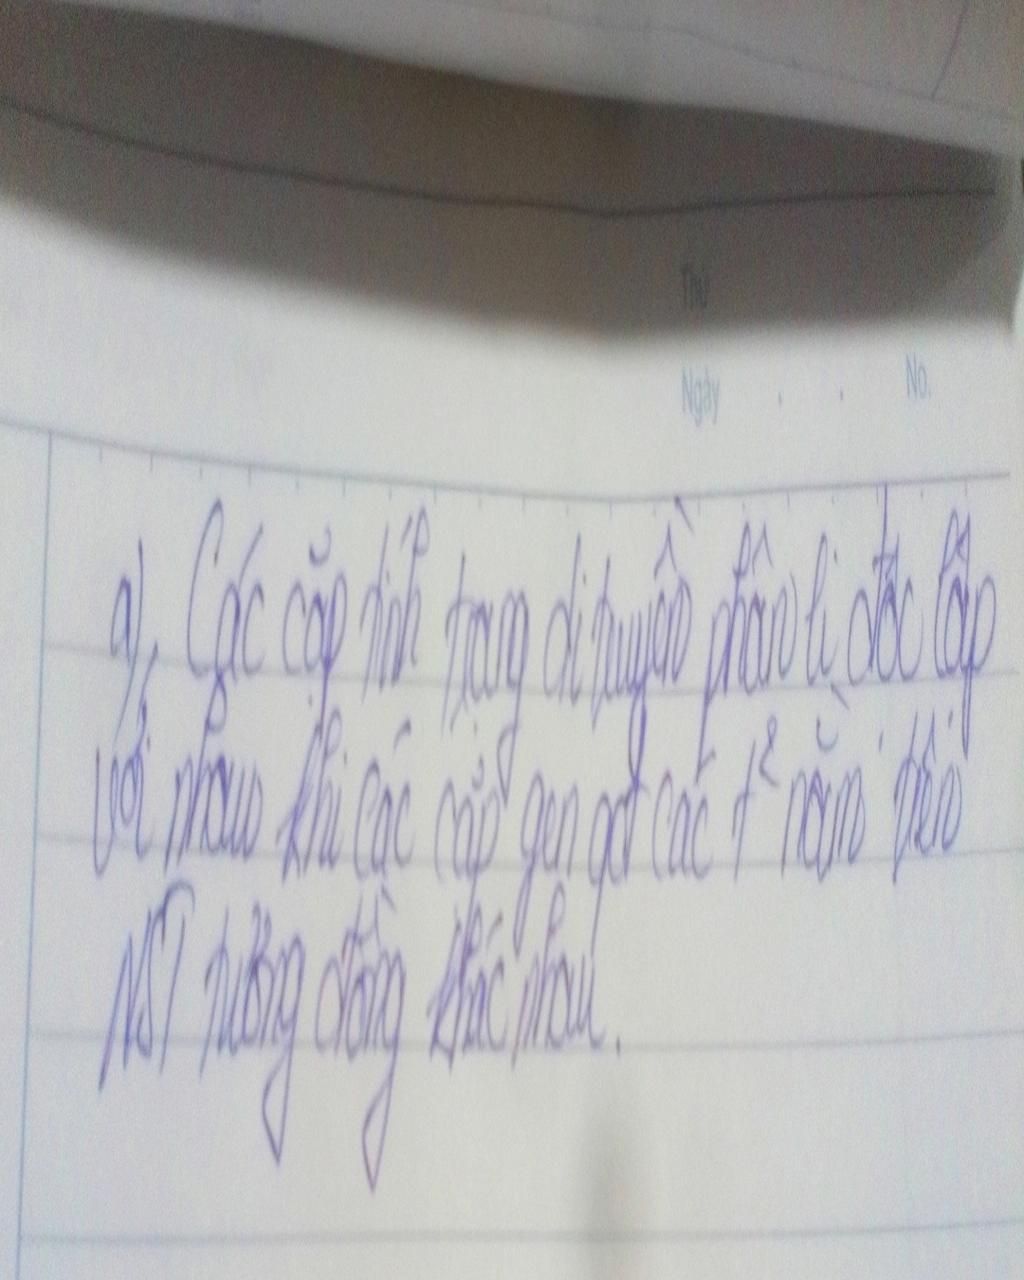 Thứ
Ngày . . No.
a), Các cặp tính trạng di truyền phân li độc lập
với nhau khi các cặp gen qđ các t² nằm trên
NST tương đồng khác nhau.